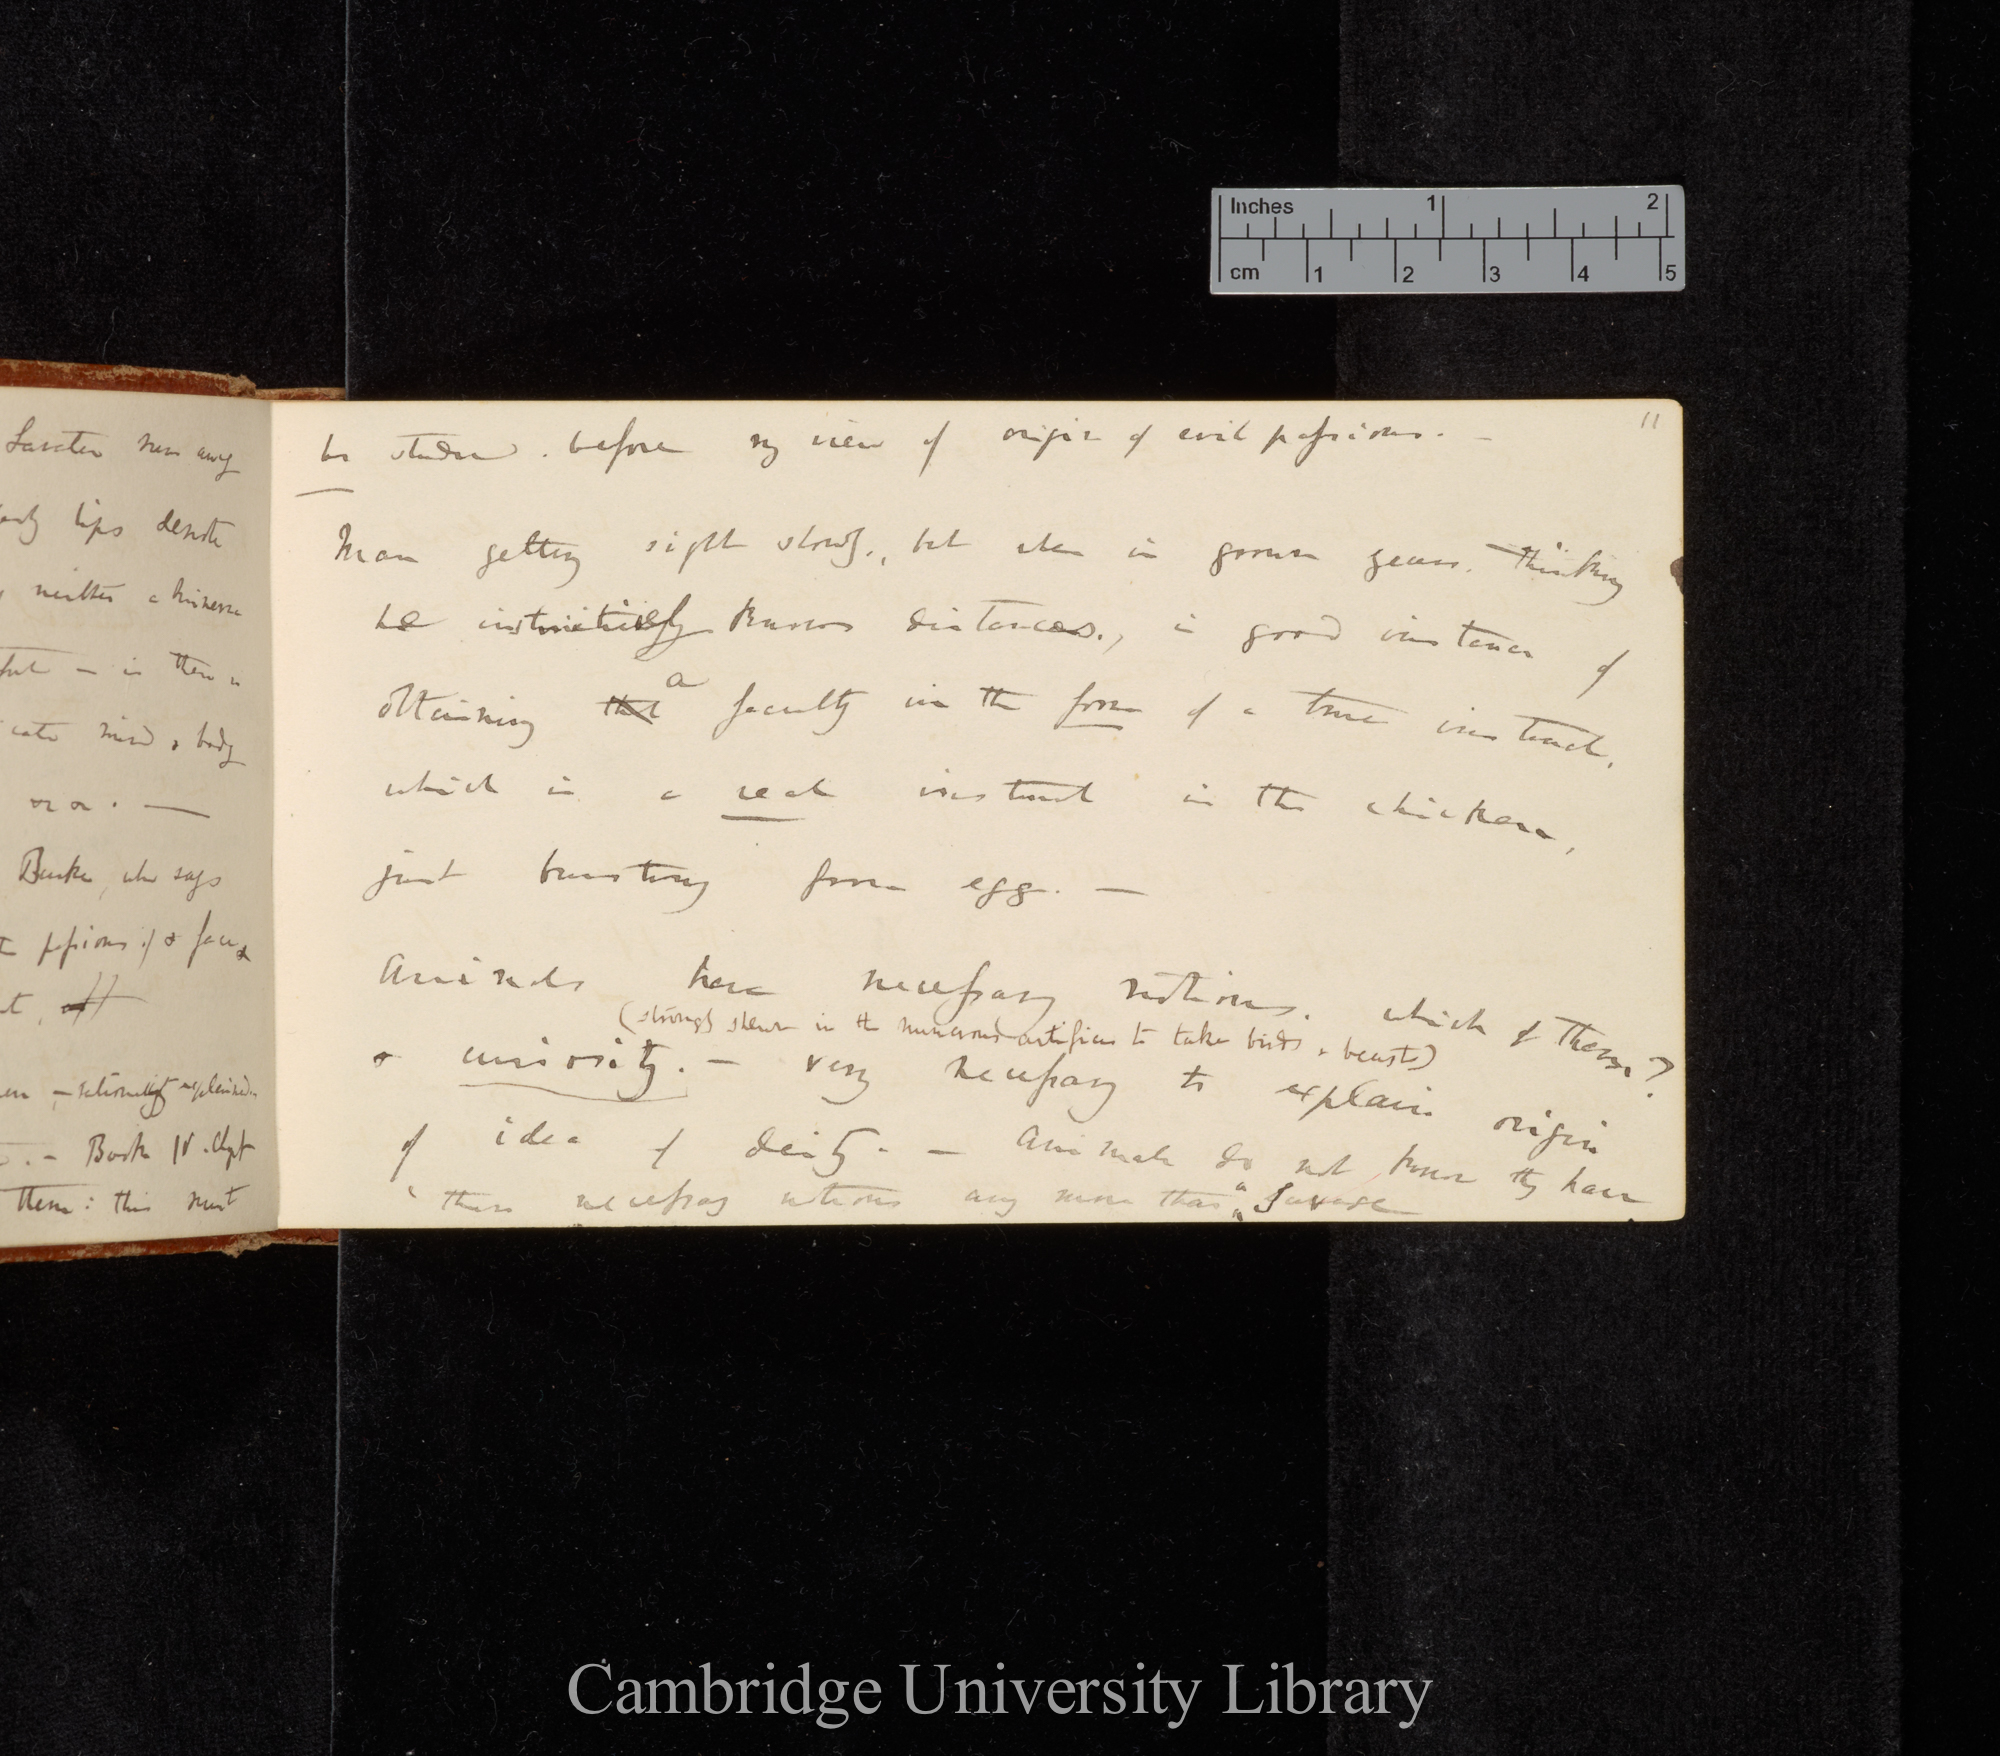 Inches 1 2
cm 1 2 3 4 5
Lavater
lips denote
neither
mind & body
or or. —
Burke, who says
passions
Book IV. Chpt
them: this must
11
be studied. before my view of origin of evil passions. —
Man getting sight slowly., but when in grown years. thinking
he instinctively knows distances., is good instance of
obtaining that a faculty in the form of a true instinct,
which is a real instinct in the chicken,
just bursting from egg. —
Animals have necessary notions. which of them?
(strongly shewn in the numerous artifices to take birds & beasts)
& curiosity. — very necessary to explain origin
of idea of deity. — Animals do not know they have
these necessary notions any more than a Savage
Cambridge University Library